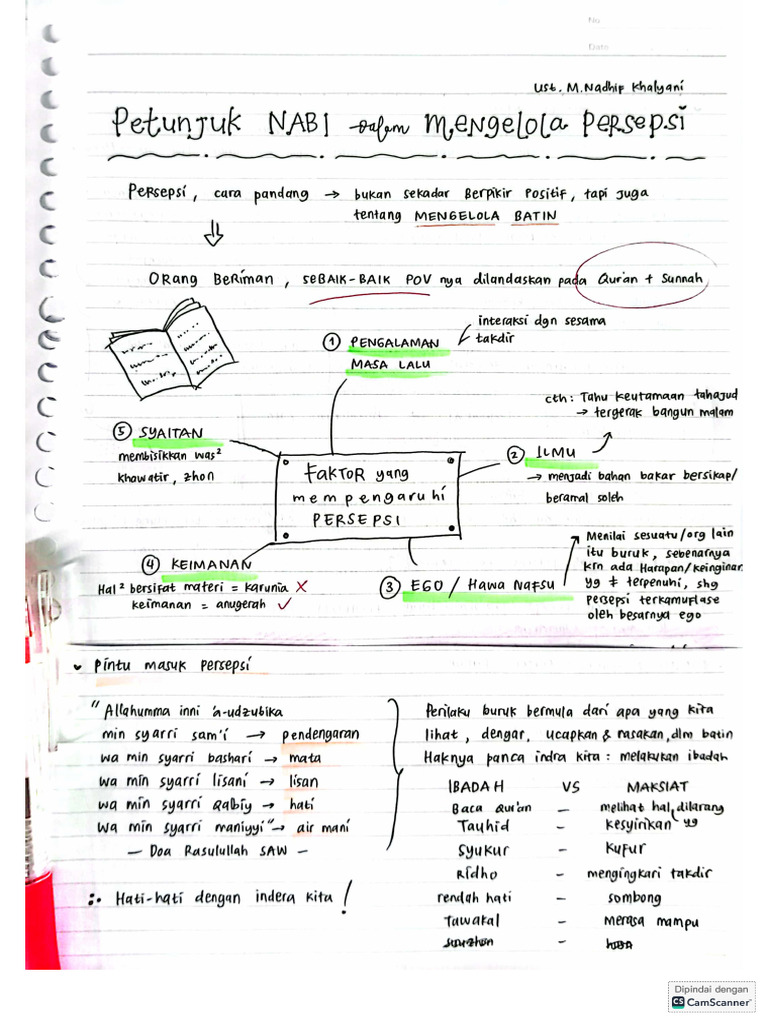 No
Date
Ust. M. Nadhif Khalyani
Petunjuk NABI dalam MENGELOLA PERSEPSI
PERSEPSI, cara pandang → bukan sekadar BERPIKIR POSITIF, tapi juga
tentang MENGELOLA BATIN
ORANG BERIMAN, SEBAIK-BAIK POV nya dilandaskan pada Qur'an + Sunnah
① PENGALAMAN
MASA LALU
interaksi dgn sesama
takdir
cth: Tahu keutamaan tahajud
→ tergerak bangun malam
② ILMU
→ menjadi bahan bakar bersikap/
beramal soleh
⑤ SYAITAN
membisikkan was²
khawatir, zhon
FAKTOR yang
mempengaruhi
PERSEPSI
④ KEIMANAN
Hal² bersifat materi = karunia X
keimanan = anugerah ✓
③ EGO / Hawa Nafsu
Menilai sesuatu/org lain
itu buruk, sebenarnya
krn ada Harapan/keinginan
yg ≠ terpenuhi, shg
persepsi terkamuflase
oleh besarnya ego
Pintu masuk persepsi
"Allahumma inni 'a-udzubika
min syarri sam'i → pendengaran
wa min syarri bashari → mata
wa min syarri lisani → lisan
wa min syarri qalbiy → hati
wa min syarri maniyyi" → air mani
— Doa Rasulullah SAW —
∴ Hati-hati dengan indera kita !
Perilaku buruk bermula dari apa yang kita
lihat, dengar, ucapkan & rasakan, dlm batin
Haknya panca indra kita : melakukan ibadah
IBADAH VS MAKSIAT
Baca Qur'an – melihat hal yg dilarang
Tauhid – kesyirikan
Syukur – kufur
Ridho – mengingkari takdir
rendah hati – sombong
Tawakal – merasa mampu
Dipindai dengan
CS CamScanner